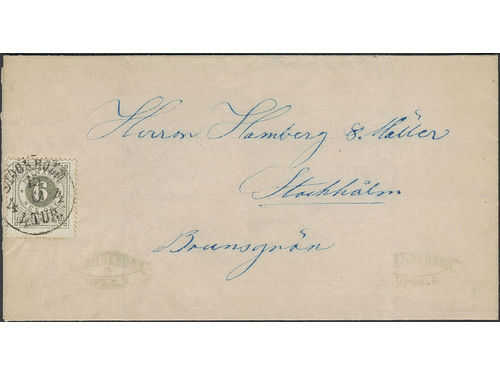 Herrar Hamberg & Möller
Stockholm
Brunsgrän
STOCKHOLM
4 TUR.
6
UPSALA
UPSALA